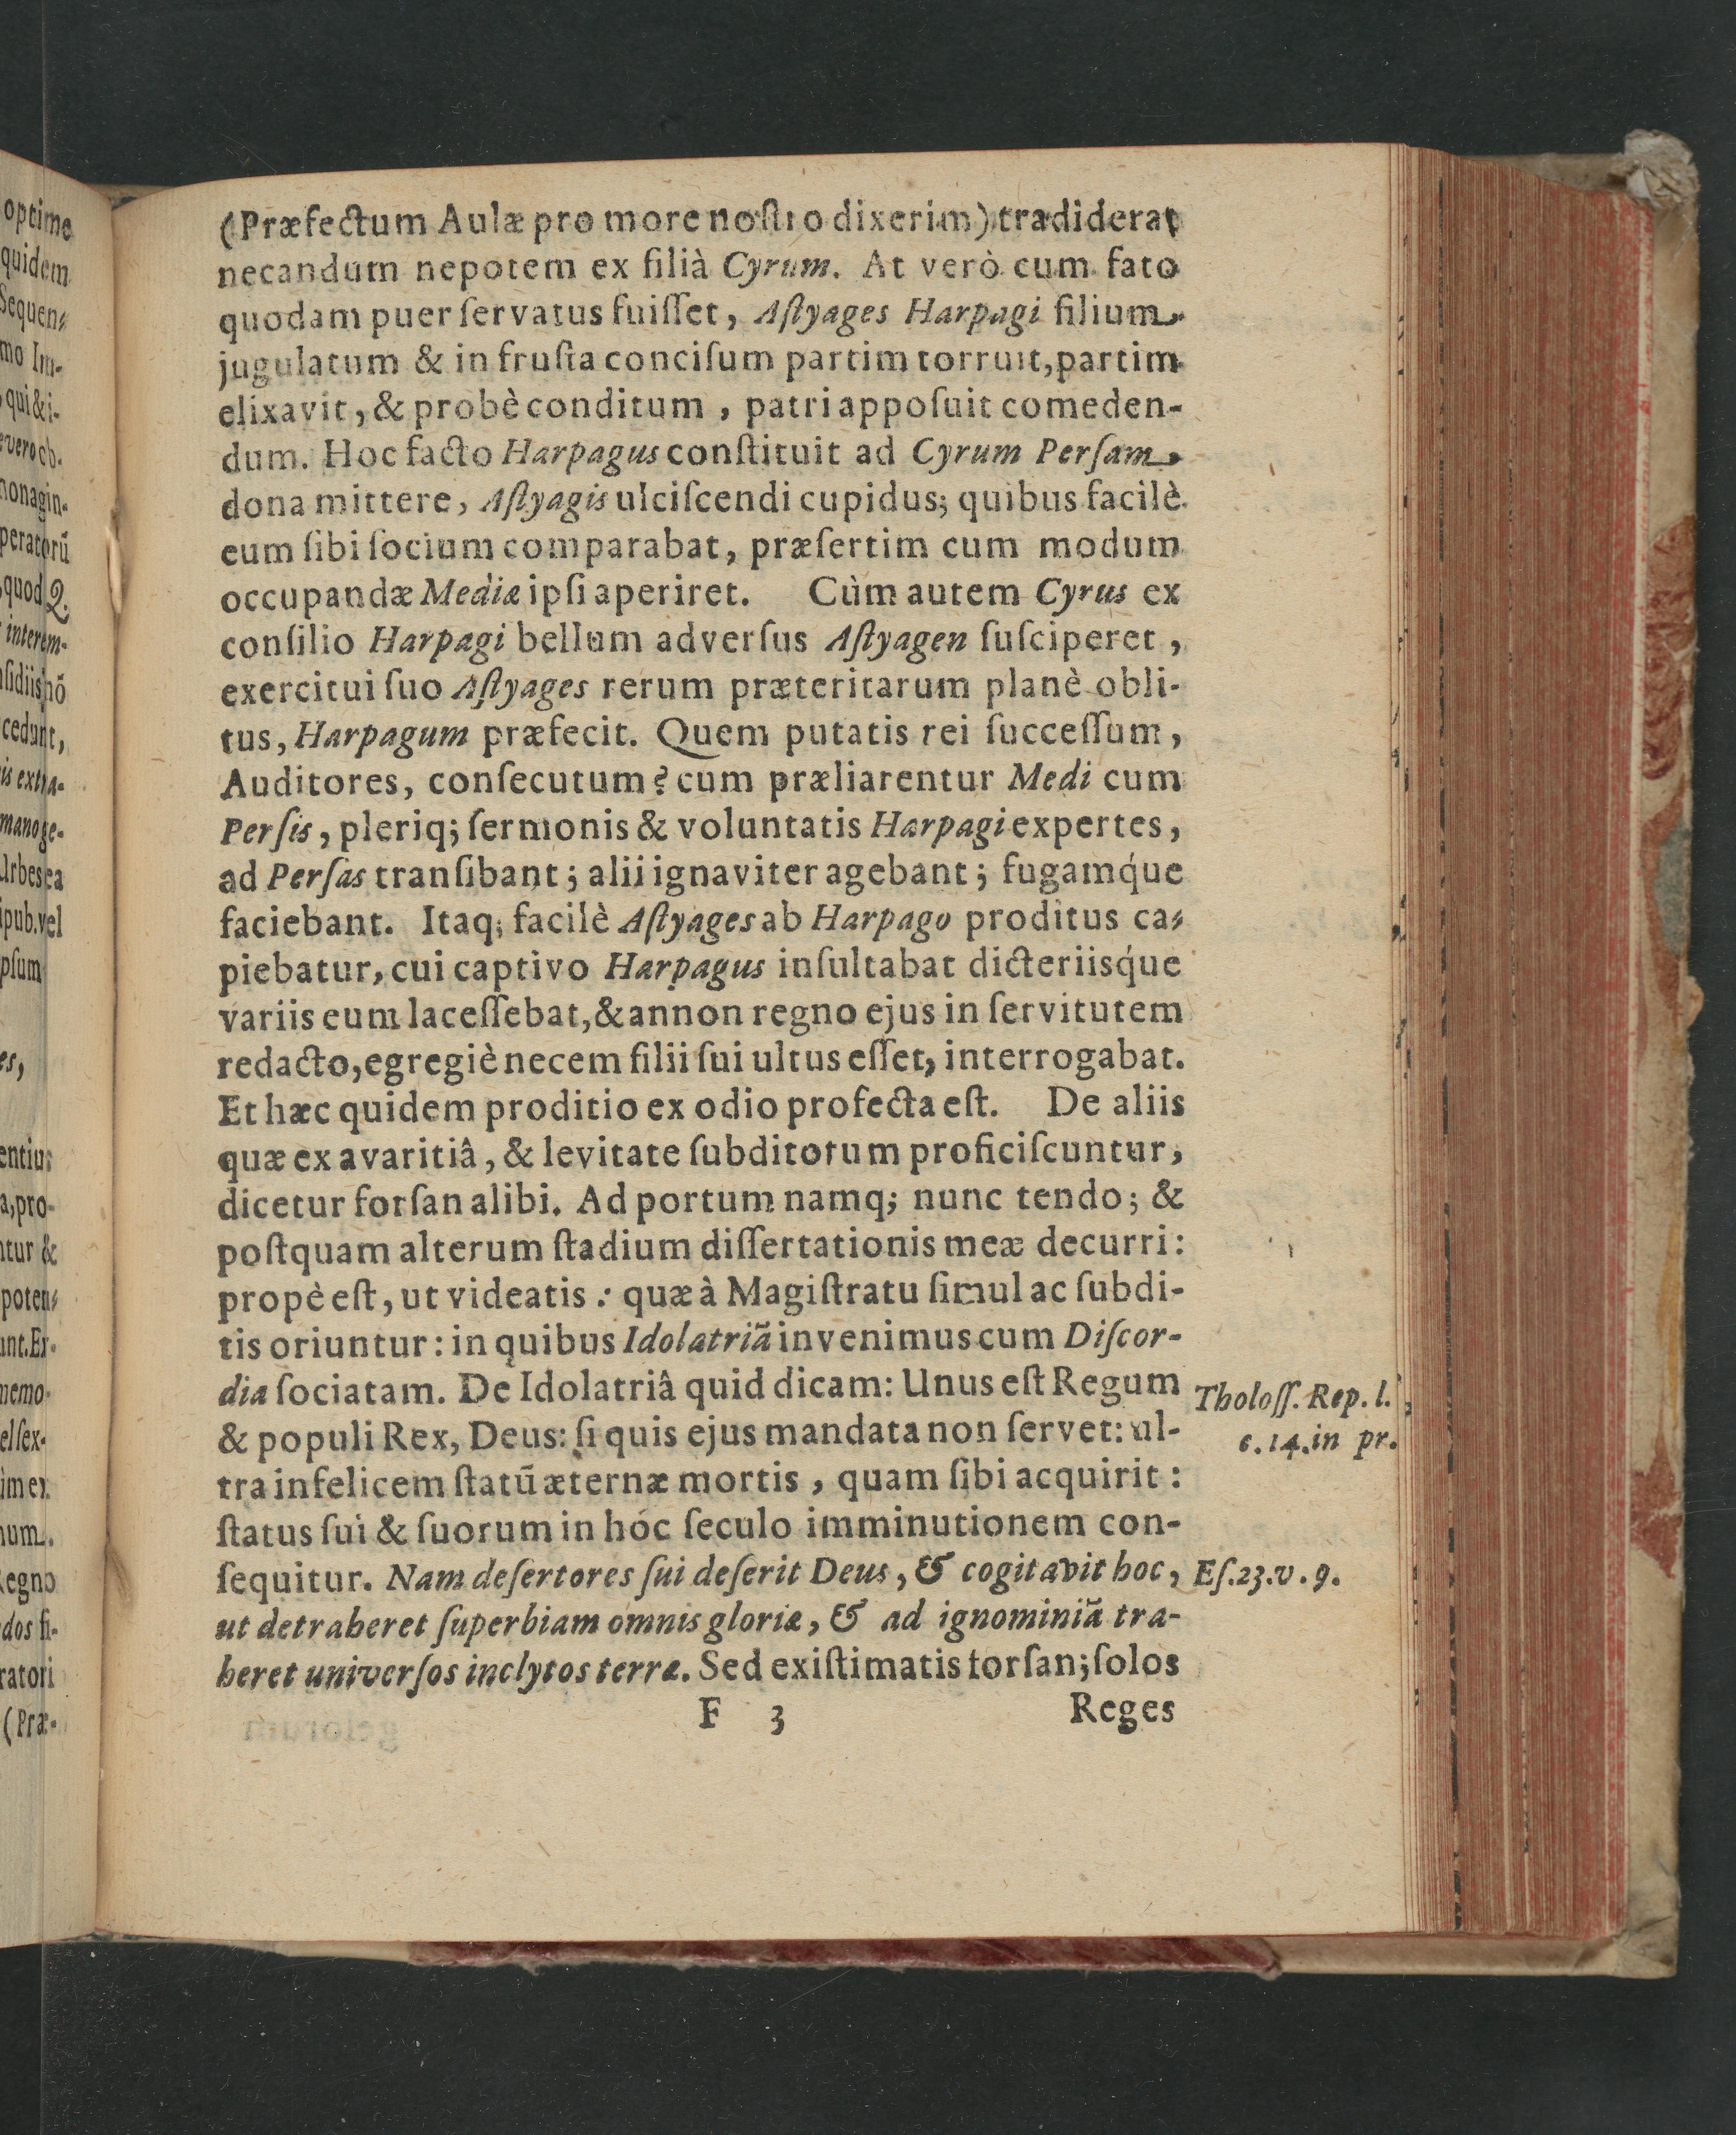 (Præfectum Aulæ pro more noſtro dixerim) tradiderat
necandum nepotem ex filià Cyrum. At verò cum fato
quodam puer ſervatus fuiſſet, Aſtyages Harpagi filium
jugulatum & in fruſta conciſum partim torruit, partim
elixavit, & probè conditum, patri appoſuit comeden-
dum. Hoc facto Harpagus conſtituit ad Cyrum Perſam
dona mittere, Aſtyagis ulciſcendi cupidus; quibus facilè
eum ſibi ſocium comparabat, præſertim cum modum
occupandæ Mediæ ipſi aperiret. Cùm autem Cyrus ex
conſilio Harpagi bellum adverſus Aſtyagen ſuſciperet,
exercitui ſuo Aſtyages rerum præteritarum planè obli-
tus, Harpagum præfecit. Quem putatis rei ſucceſſum,
Auditores, conſecutum? cum præliarentur Medi cum
Perſis, pleriq; ſermonis & voluntatis Harpagi expertes,
ad Perſas tranſibant; alii ignaviter agebant; fugamq́ue
faciebant. Itaq; facilè Aſtyages ab Harpago proditus ca-
piebatur, cui captivo Harpagus inſultabat dicteriisq́ue
variis eum laceſſebat, & annon regno ejus in ſervitutem
redacto, egregiè necem filii ſui ultus eſſet, interrogabat.
Et hæc quidem proditio ex odio profecta eſt. De aliis
quæ ex avaritiâ, & levitate ſubditorum proficiſcuntur,
dicetur forſan alibi. Ad portum namq; nunc tendo; &
poſtquam alterum ſtadium diſſertationis meæ decurri:
propè eſt, ut videatis: quæ à Magiſtratu ſimul ac ſubdi-
tis oriuntur: in quibus Idolatriã invenimus cum Diſcor-
dia ſociatam. De Idolatriâ quid dicam: Unus eſt Regum
Tholoſſ. Rep. l.
& populi Rex, Deus: ſi quis ejus mandata non ſervet: ul-
6. 14. in pr.
tra infelicem ſtatũ æternæ mortis, quam ſibi acquirit:
ſtatus ſui & ſuorum in hóc ſeculo imminutionem con-
ſequitur. Nam deſertores ſui deſerit Deus, & cogitavit hoc,
Eſ. 23. v. 9.
ut detraheret ſuperbiam omnis gloriæ, & ad ignominiã tra-
heret univerſos inclytos terræ. Sed exiſtimatis forſan; ſolos
F 3 Reges